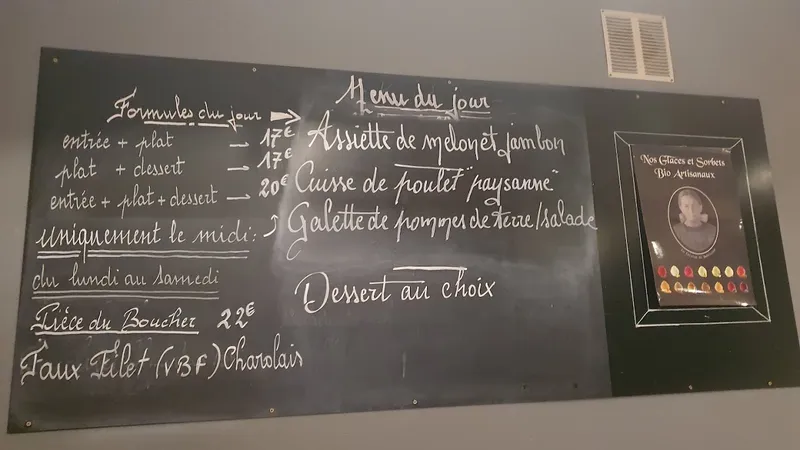 Formules du jour
entrée + plat → 17€
plat + dessert → 17€
entrée + plat + dessert → 20€
uniquement le midi:
du lundi au samedi
Pièce du Boucher 22€
Faux Filet (VBF) Charolais
Menu du jour
Assiette de melon et jambon
Cuisse de poulet "paysanne"
Galette de pommes de terre/salade
Dessert au choix
Nos Glaces et Sorbets
Bio Artisanaux